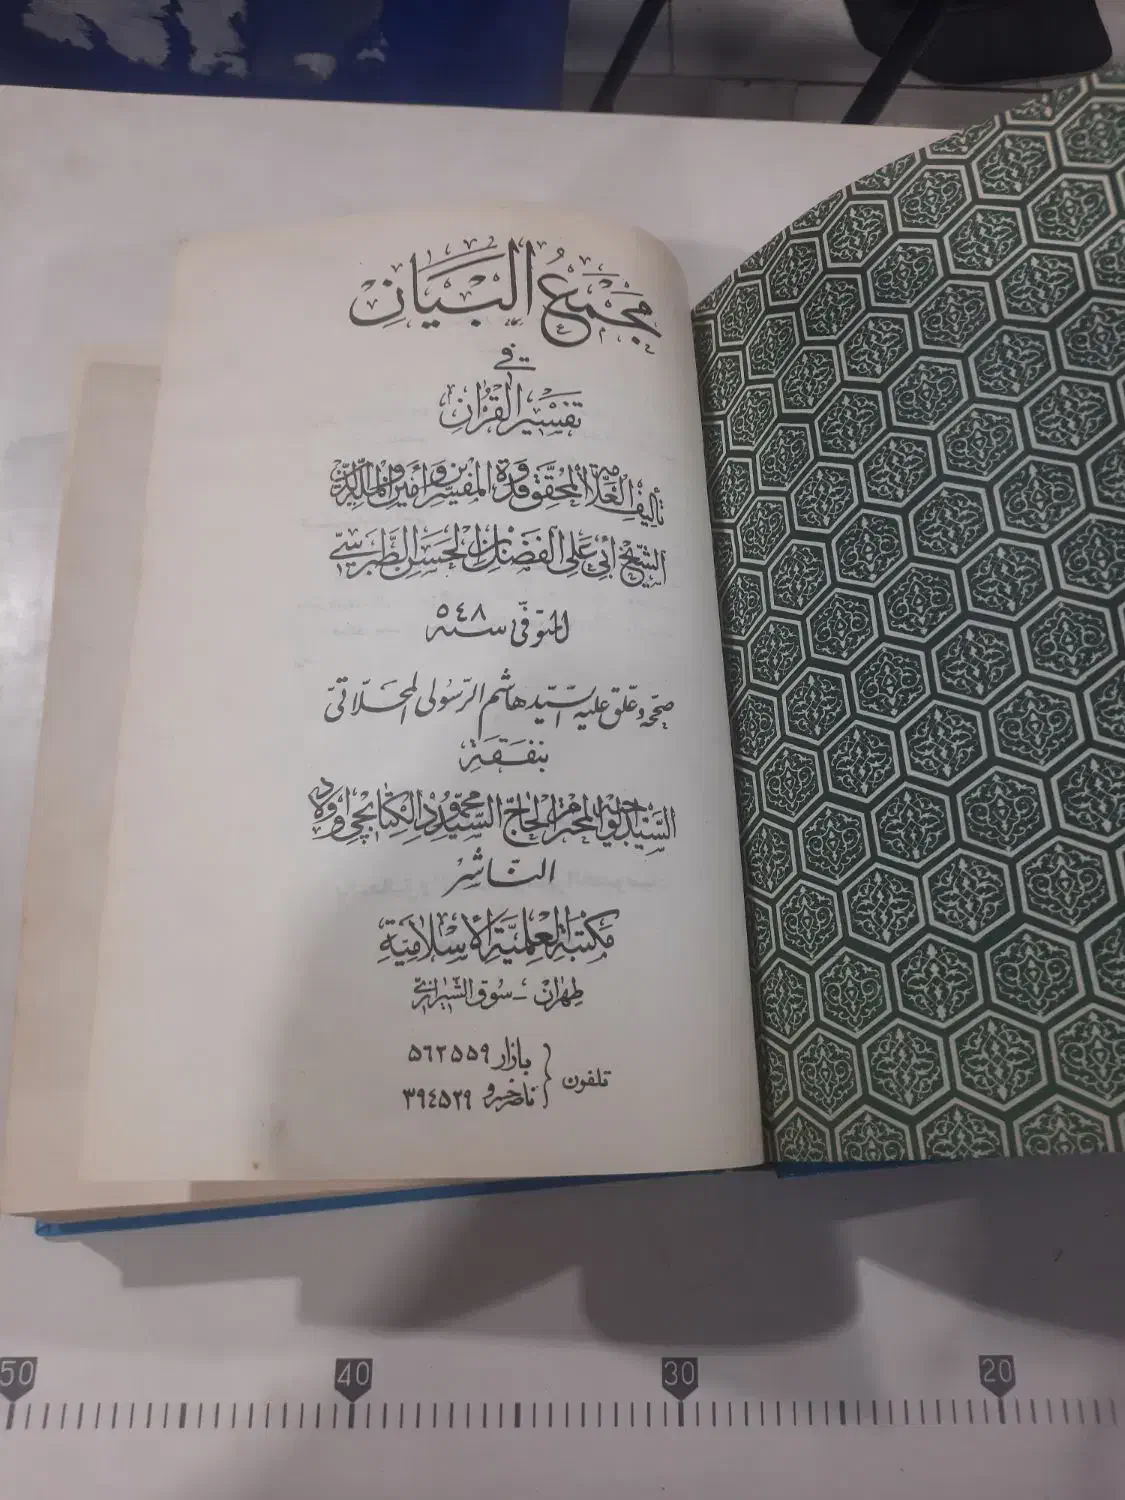 مَجْمَعُ البَيَانِ
في
تَفْسيرِ القُرْآنِ
تأليف العلامة المحقق قدوة المفسرين وأمين الملة والدين
الشيخ أبي علي الفضل بن الحسن الطبرسي
المتوفى سنة ٥٤٨
صححه وعلق عليه السيد هاشم الرسولي المحلاتي
بنفقة
السيد جواد المحرم الحاج السيد محمود الكتابچي اولاد
الناشر
مكتبة العلمية الإسلامية
طهران - سوق الشيرازي
تلفون
بازار ٥٦٢٥٥٩
ناصرخسرو ٣٩٤٥٢٩
50 40 30 20